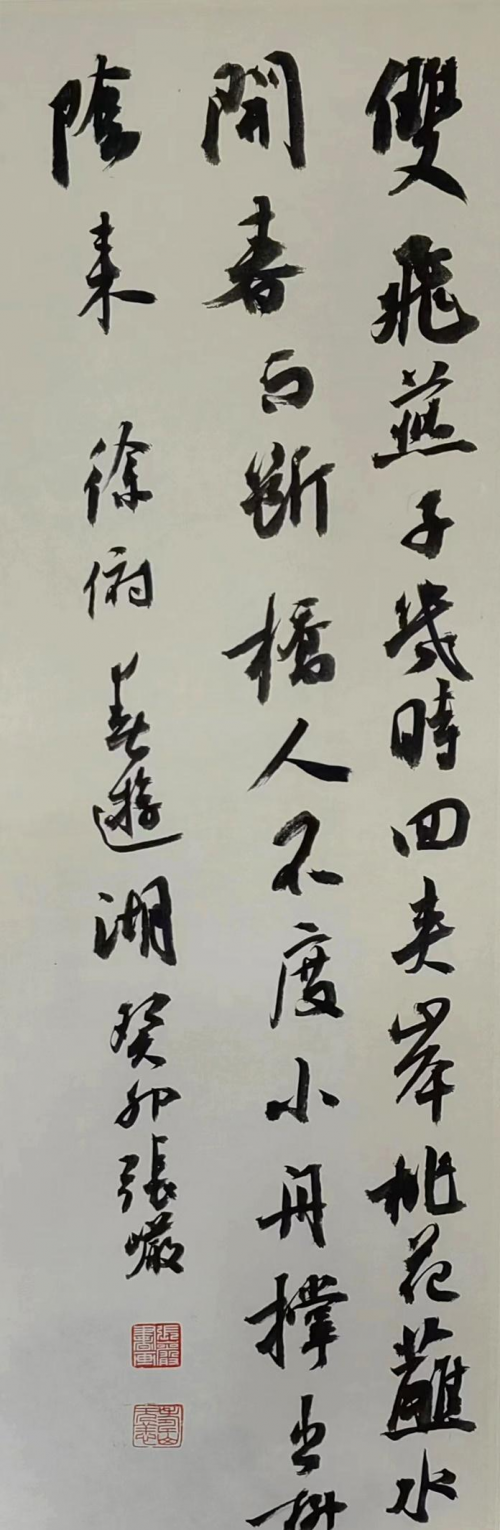 雙飛燕子幾時回夾岸桃花蘸水
開春雨斷橋人不度小舟撐出柳
陰来 徐俯春遊湖 癸卯張巖